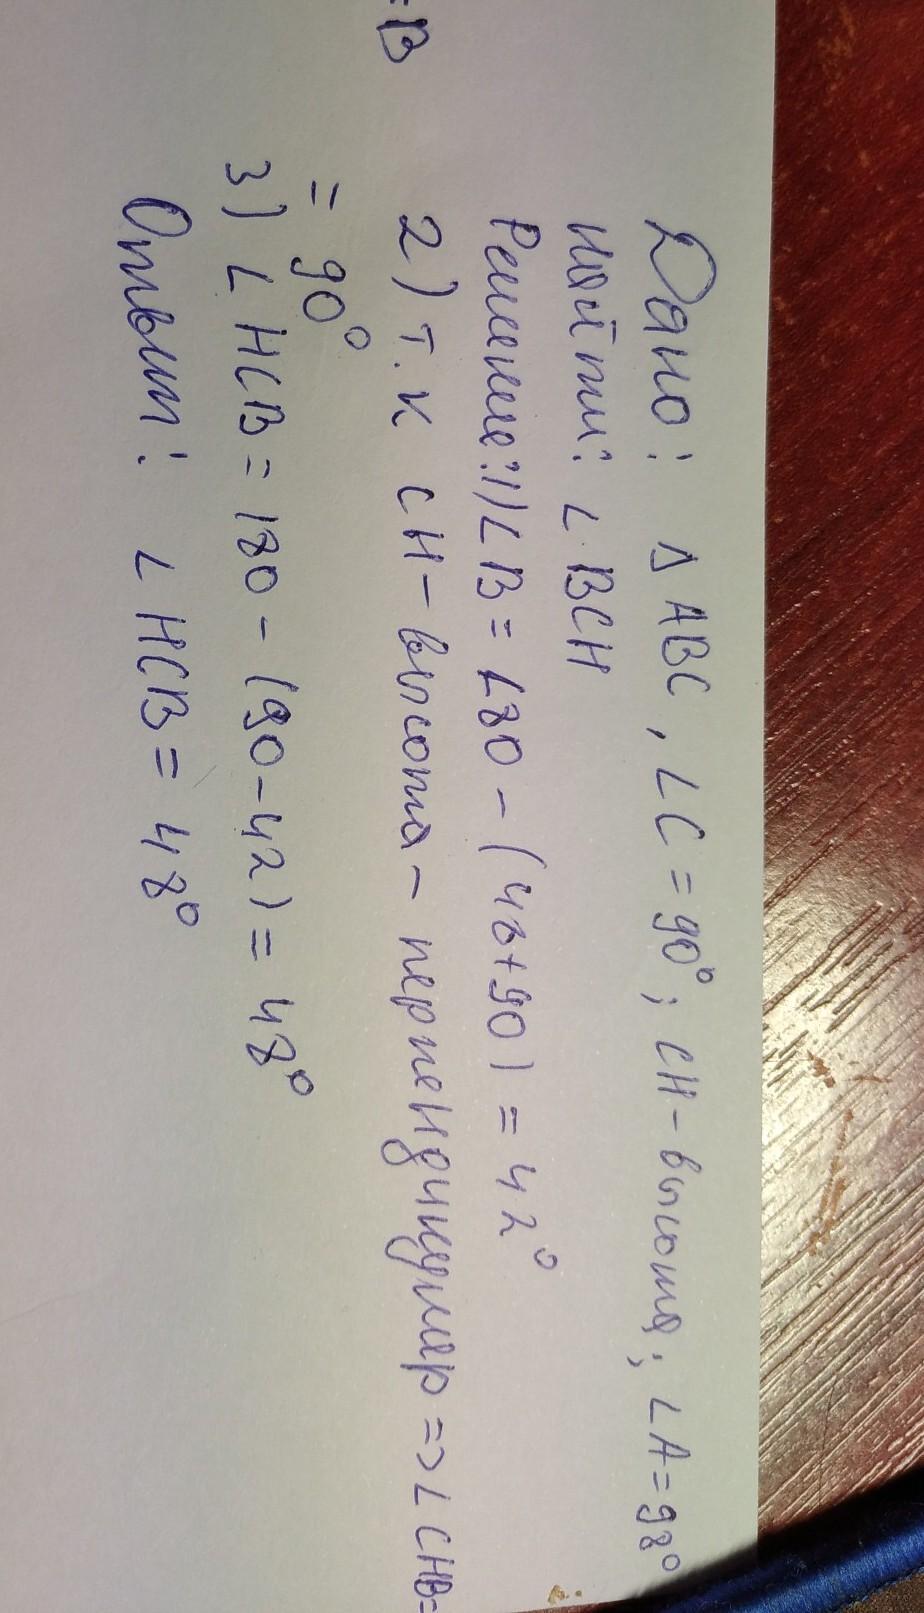 Дано: Δ ABC, ∠C = 90°; CH - высота; ∠A = 98°
Найти: ∠ BCH
Решение: 1) ∠ B = 180 - (48 + 90) = 42°
2) т. к CH - высота - перпендикуляр => ∠ CHB =
= 90°
3) ∠ HCB = 180 - (90 - 42) = 48°
Ответ: ∠ HCB = 48°
= B